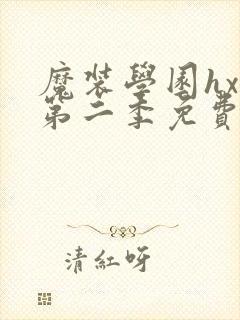 魔裝學園hx
第二季免費
清紅呀